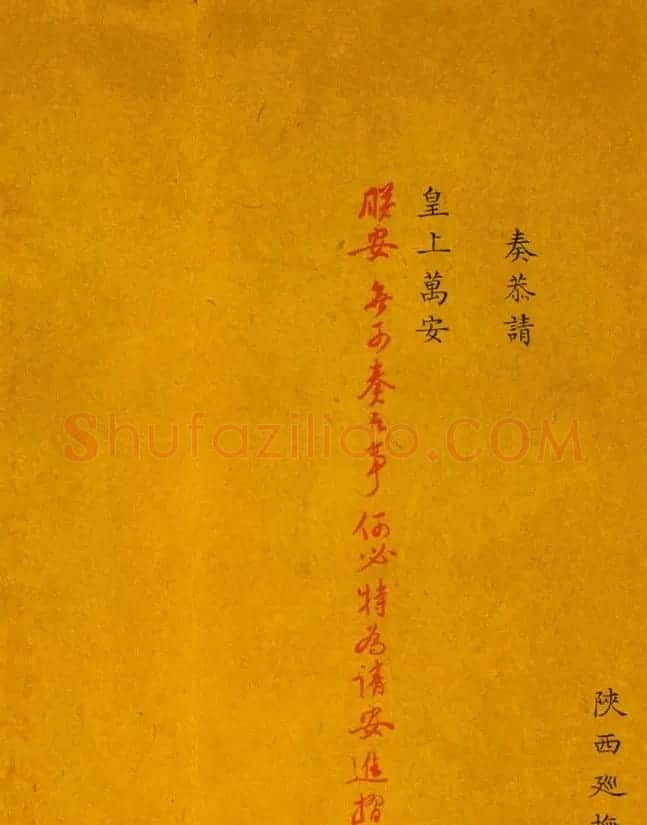 陝西廵撫
奏恭請
皇上萬安
朕安無可奏之事何必特為請安進摺
Shufaziliao.COM